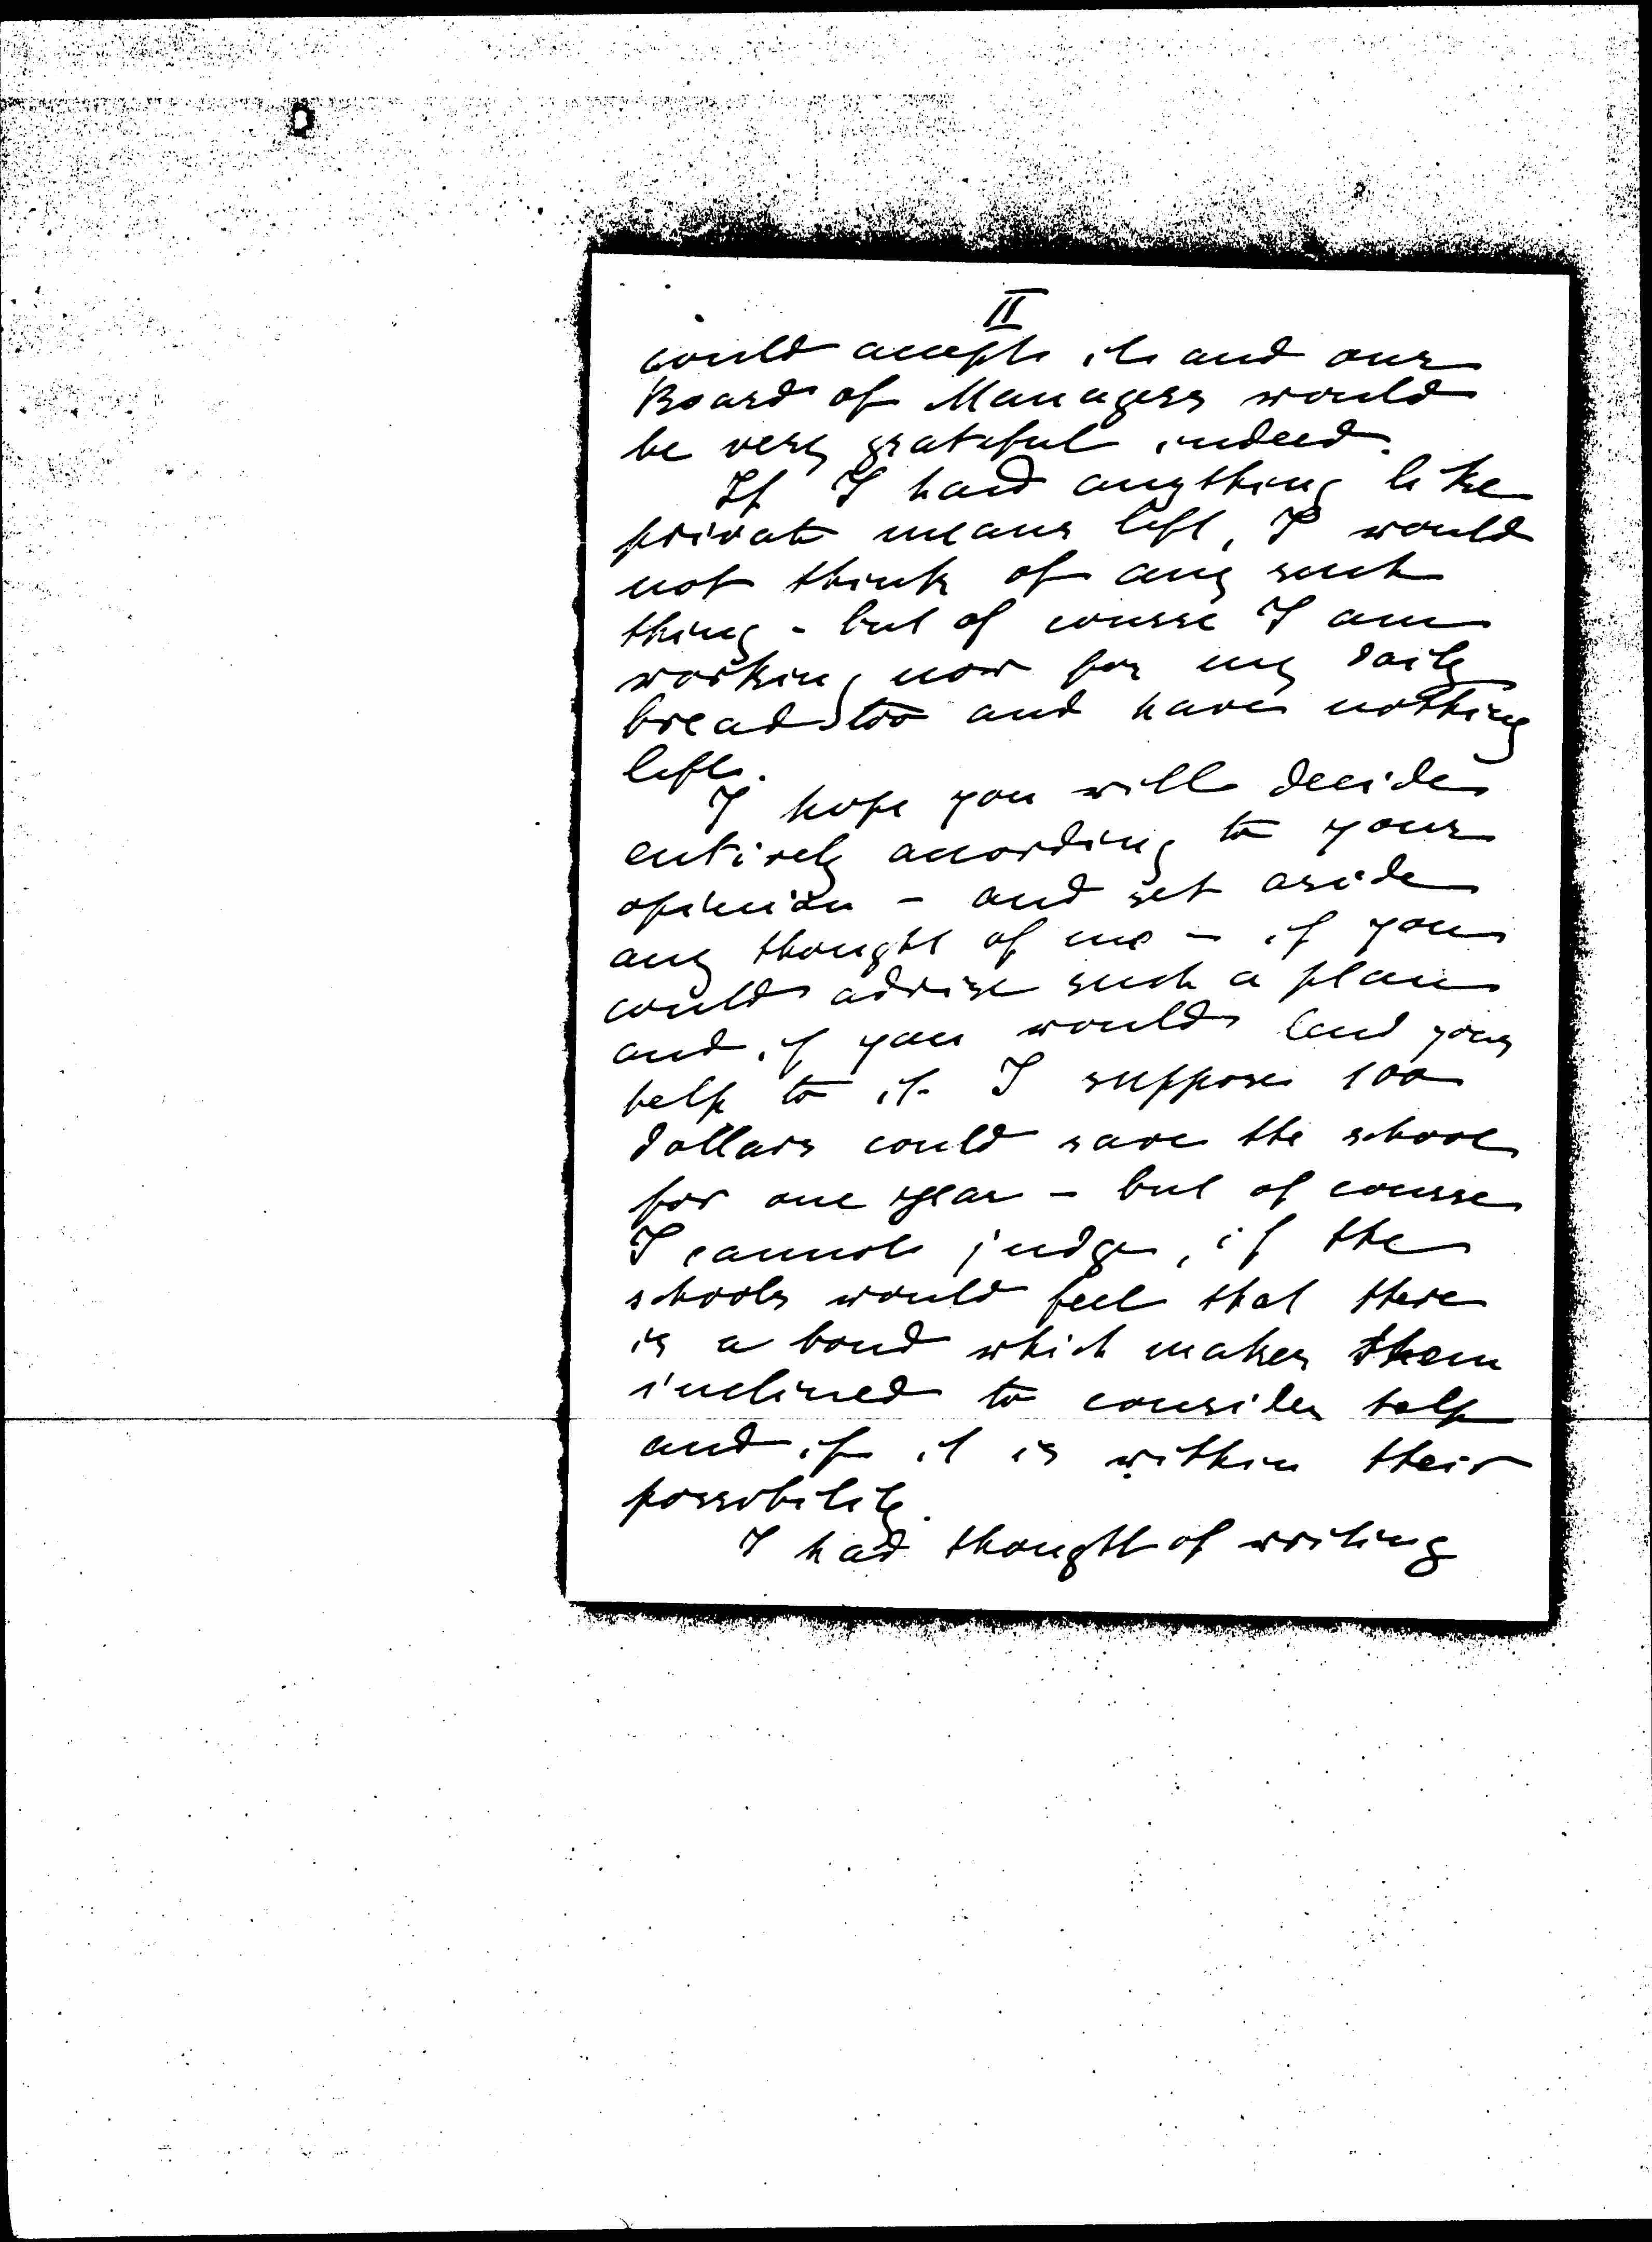 II
could accept it and our
Board of Managers would
be very grateful indeed.
If I had anything like
private means left, I would
not think of any such
thing - but of course I am
working now for my daily
bread too and have nothing
left.
I hope you will decide
entirely according to your
opinion - and set aside
any thought of me - if you
could advise such a plan
and if you would lend your
help to it. I suppose 100
dollars could save the school
for one year - but of course
I cannot judge, if the
schools would feel that there
is a bond which makes them
inclined to consider help
and if it is within their
possibility.
I had thought of writing